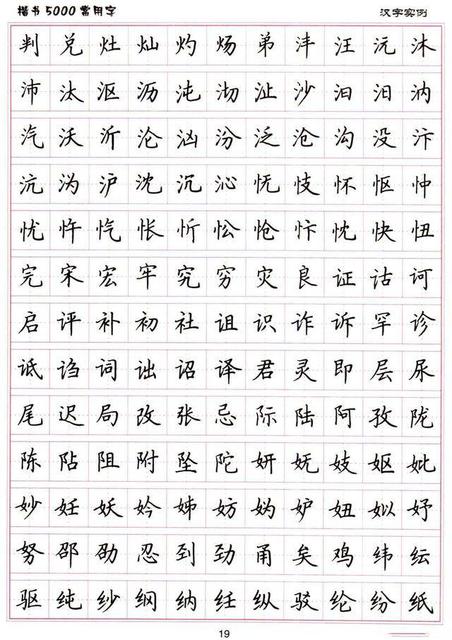 楷书5000常用字
汉字实例
判兑灶灿灼炀弟沣汪沅沐
沛汰沤沥沌沏沚沙汩汨汭
汽沃沂沦汹汾泛沧沟没汴
沆沩沪沈沉沁怃忮怀怄忡
忧忤忾怅忻忪怆忭忱快忸
完宋宏牢究穷灾良证诂诃
启评补初社诅识诈诉罕诊
诋诌词诎诏译君灵即层尿
尾迟局改张忌际陆阿孜陇
陈阽阻附坠陀妍妩妓妪妣
妙妊妖妗姊妨妫妒妞姒妤
努邵劭忍刭劲甬矣鸡纬纭
驱纯纱纲纳纴纵驳纶纷纸
19